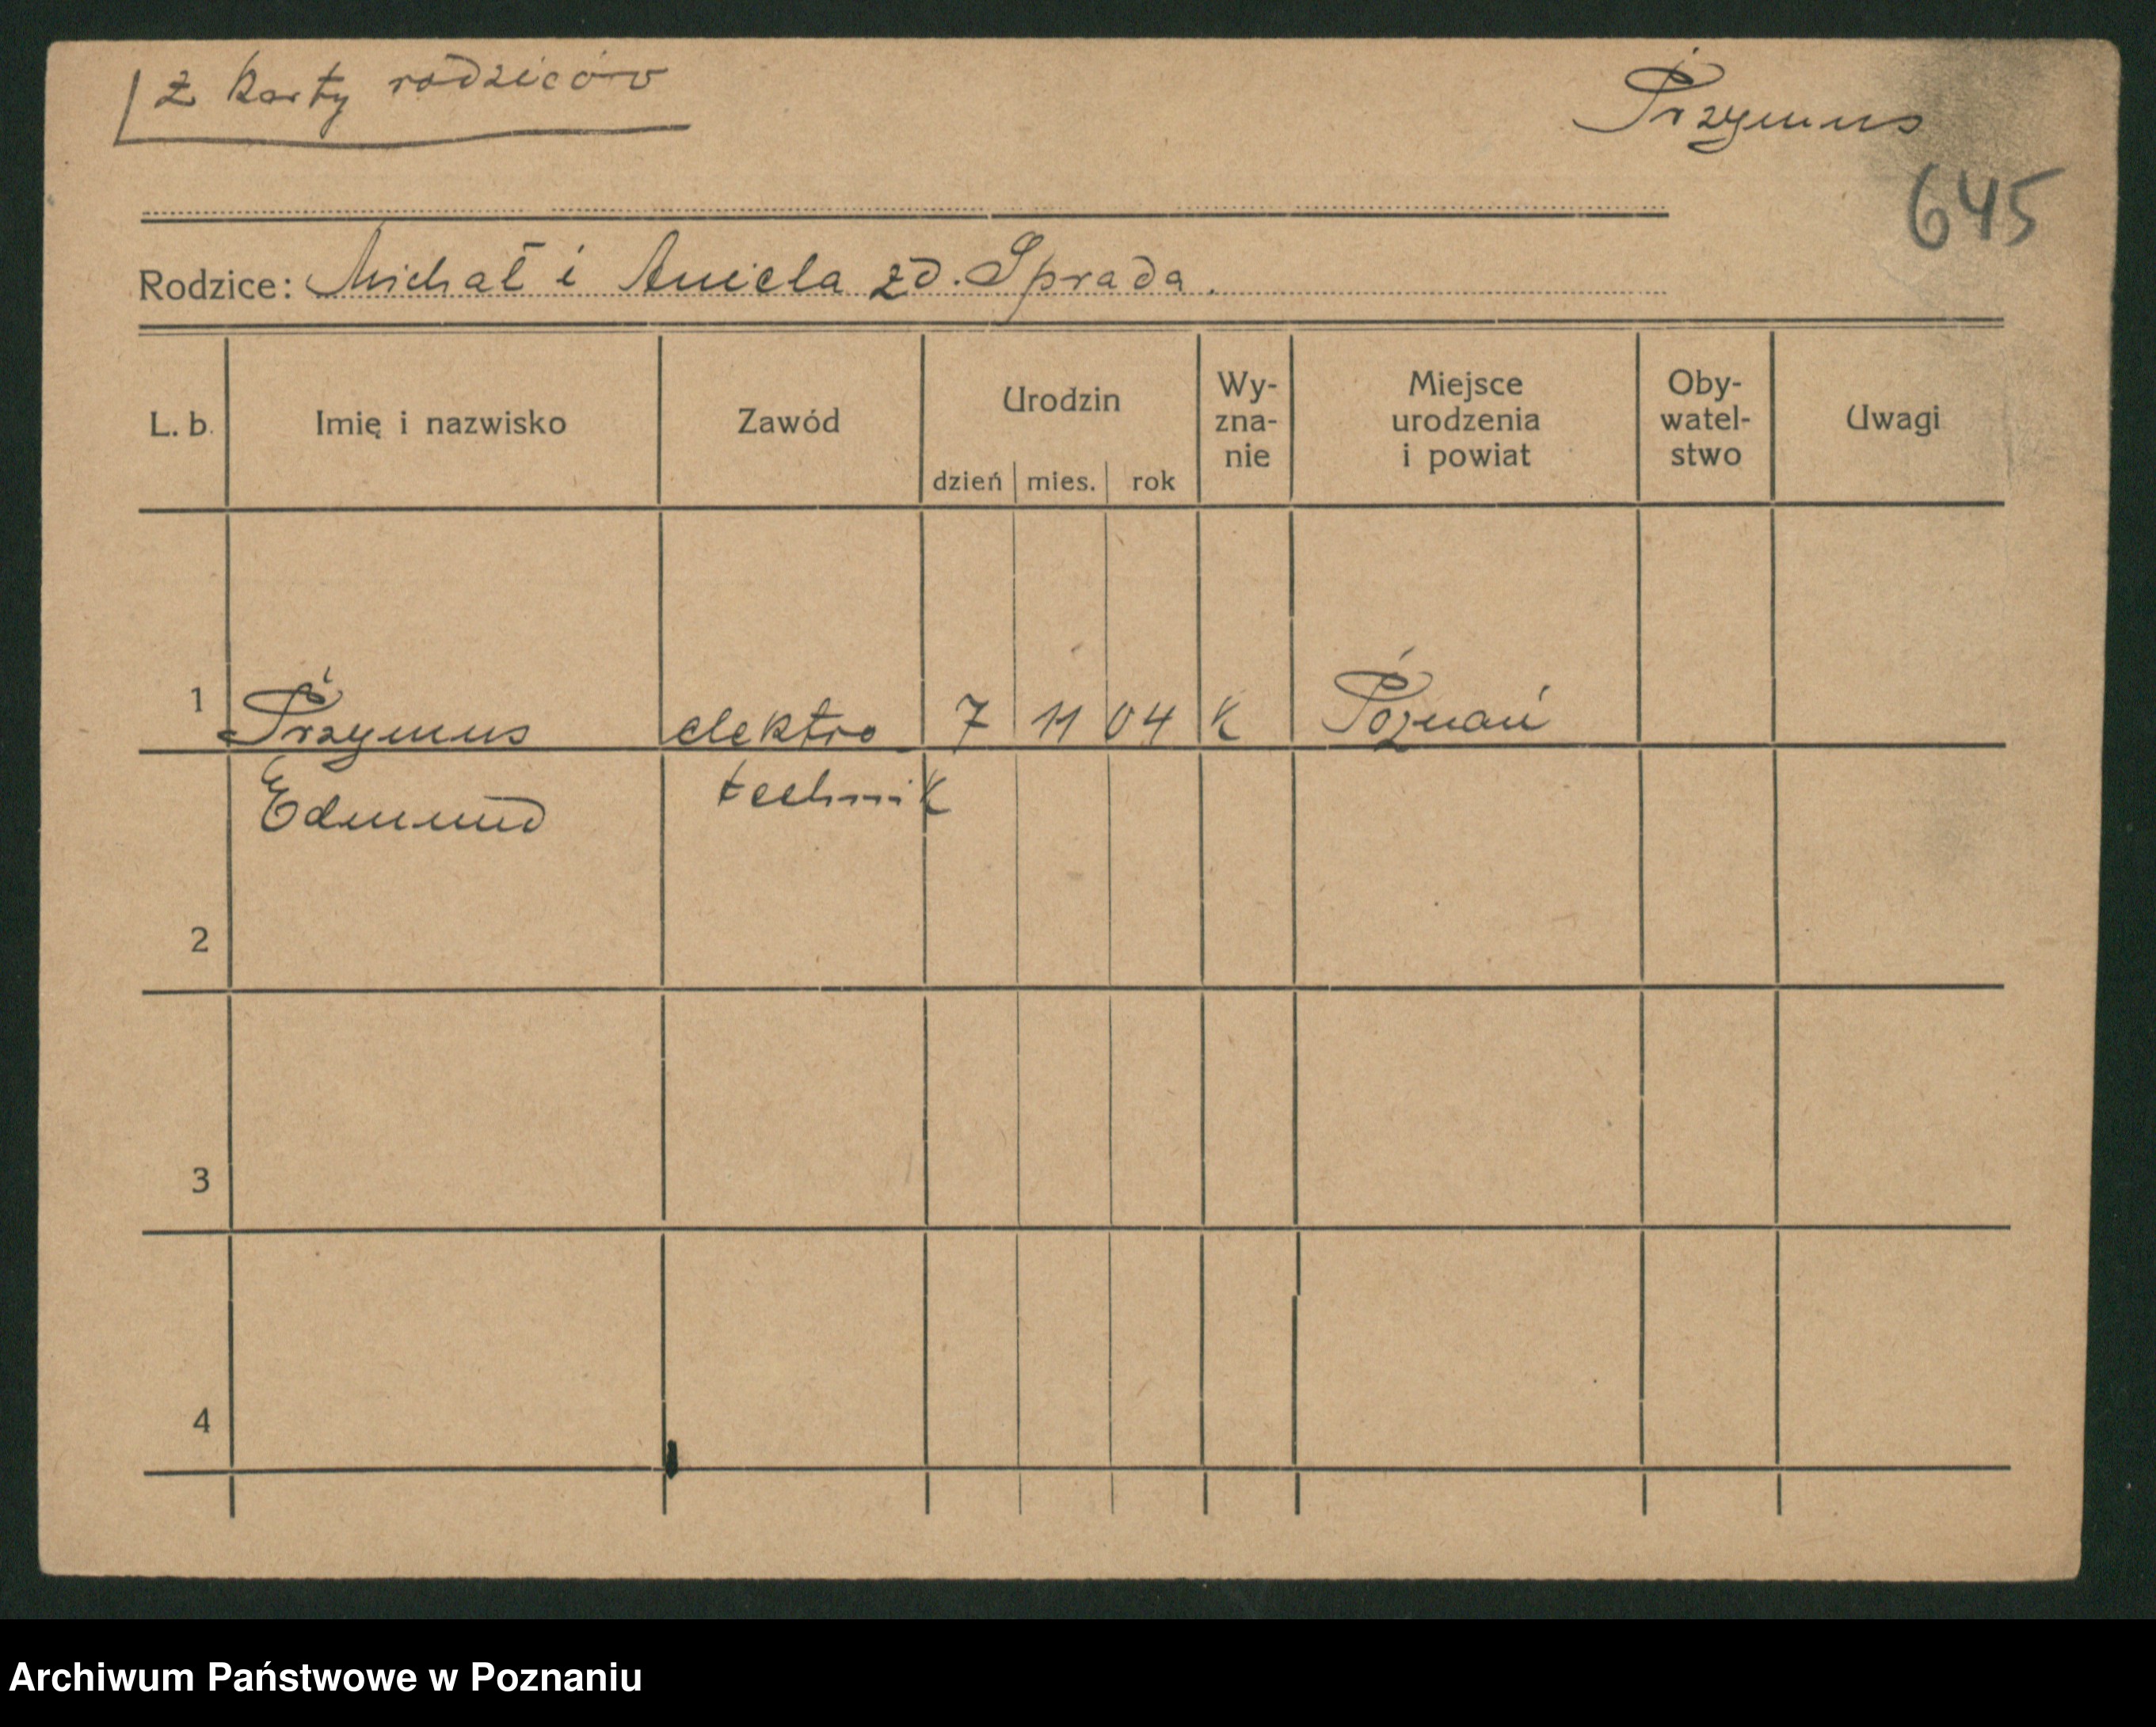 z karty rodziców
Przymus
645
Rodzice: Michał i Aniela zd. Sprada.
L. b. Imię i nazwisko Zawód Urodzin dzień mies. rok Wy-zna-nie Miejsce urodzenia i powiat Oby-watel-stwo Uwagi
1 Przymus elektro 7 11 04 K Poznań
Edmund technik
2
3
4
Archiwum Państwowe w Poznaniu